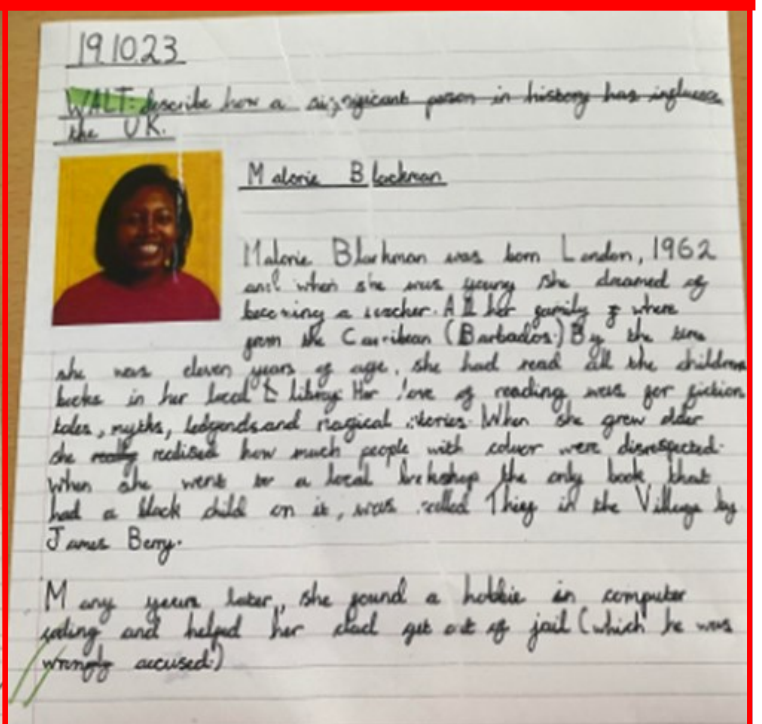 19.10.23
WALT: describe how a significant person in history has influence
the UK.
Malorie Blackman
Malorie Blackman was born London, 1962
and when she was young she dreamed of
becoming a teacher. All her family where
from the Carribean (Barbados.) By the time
she was eleven years of age, she had read all the children
books in her local library. Her love of reading was for fiction
tales, myths, ledgends and magical stories. When she grew older
she really realised how much people with colour were disrespected.
When she went to a local bookshop the only book that
had a black child on it, was called Thief in the Village by
James Berry.
Many years later, she found a hobbie in computer
coding and helped her dad get out of jail (which he was
wrongly accused.)